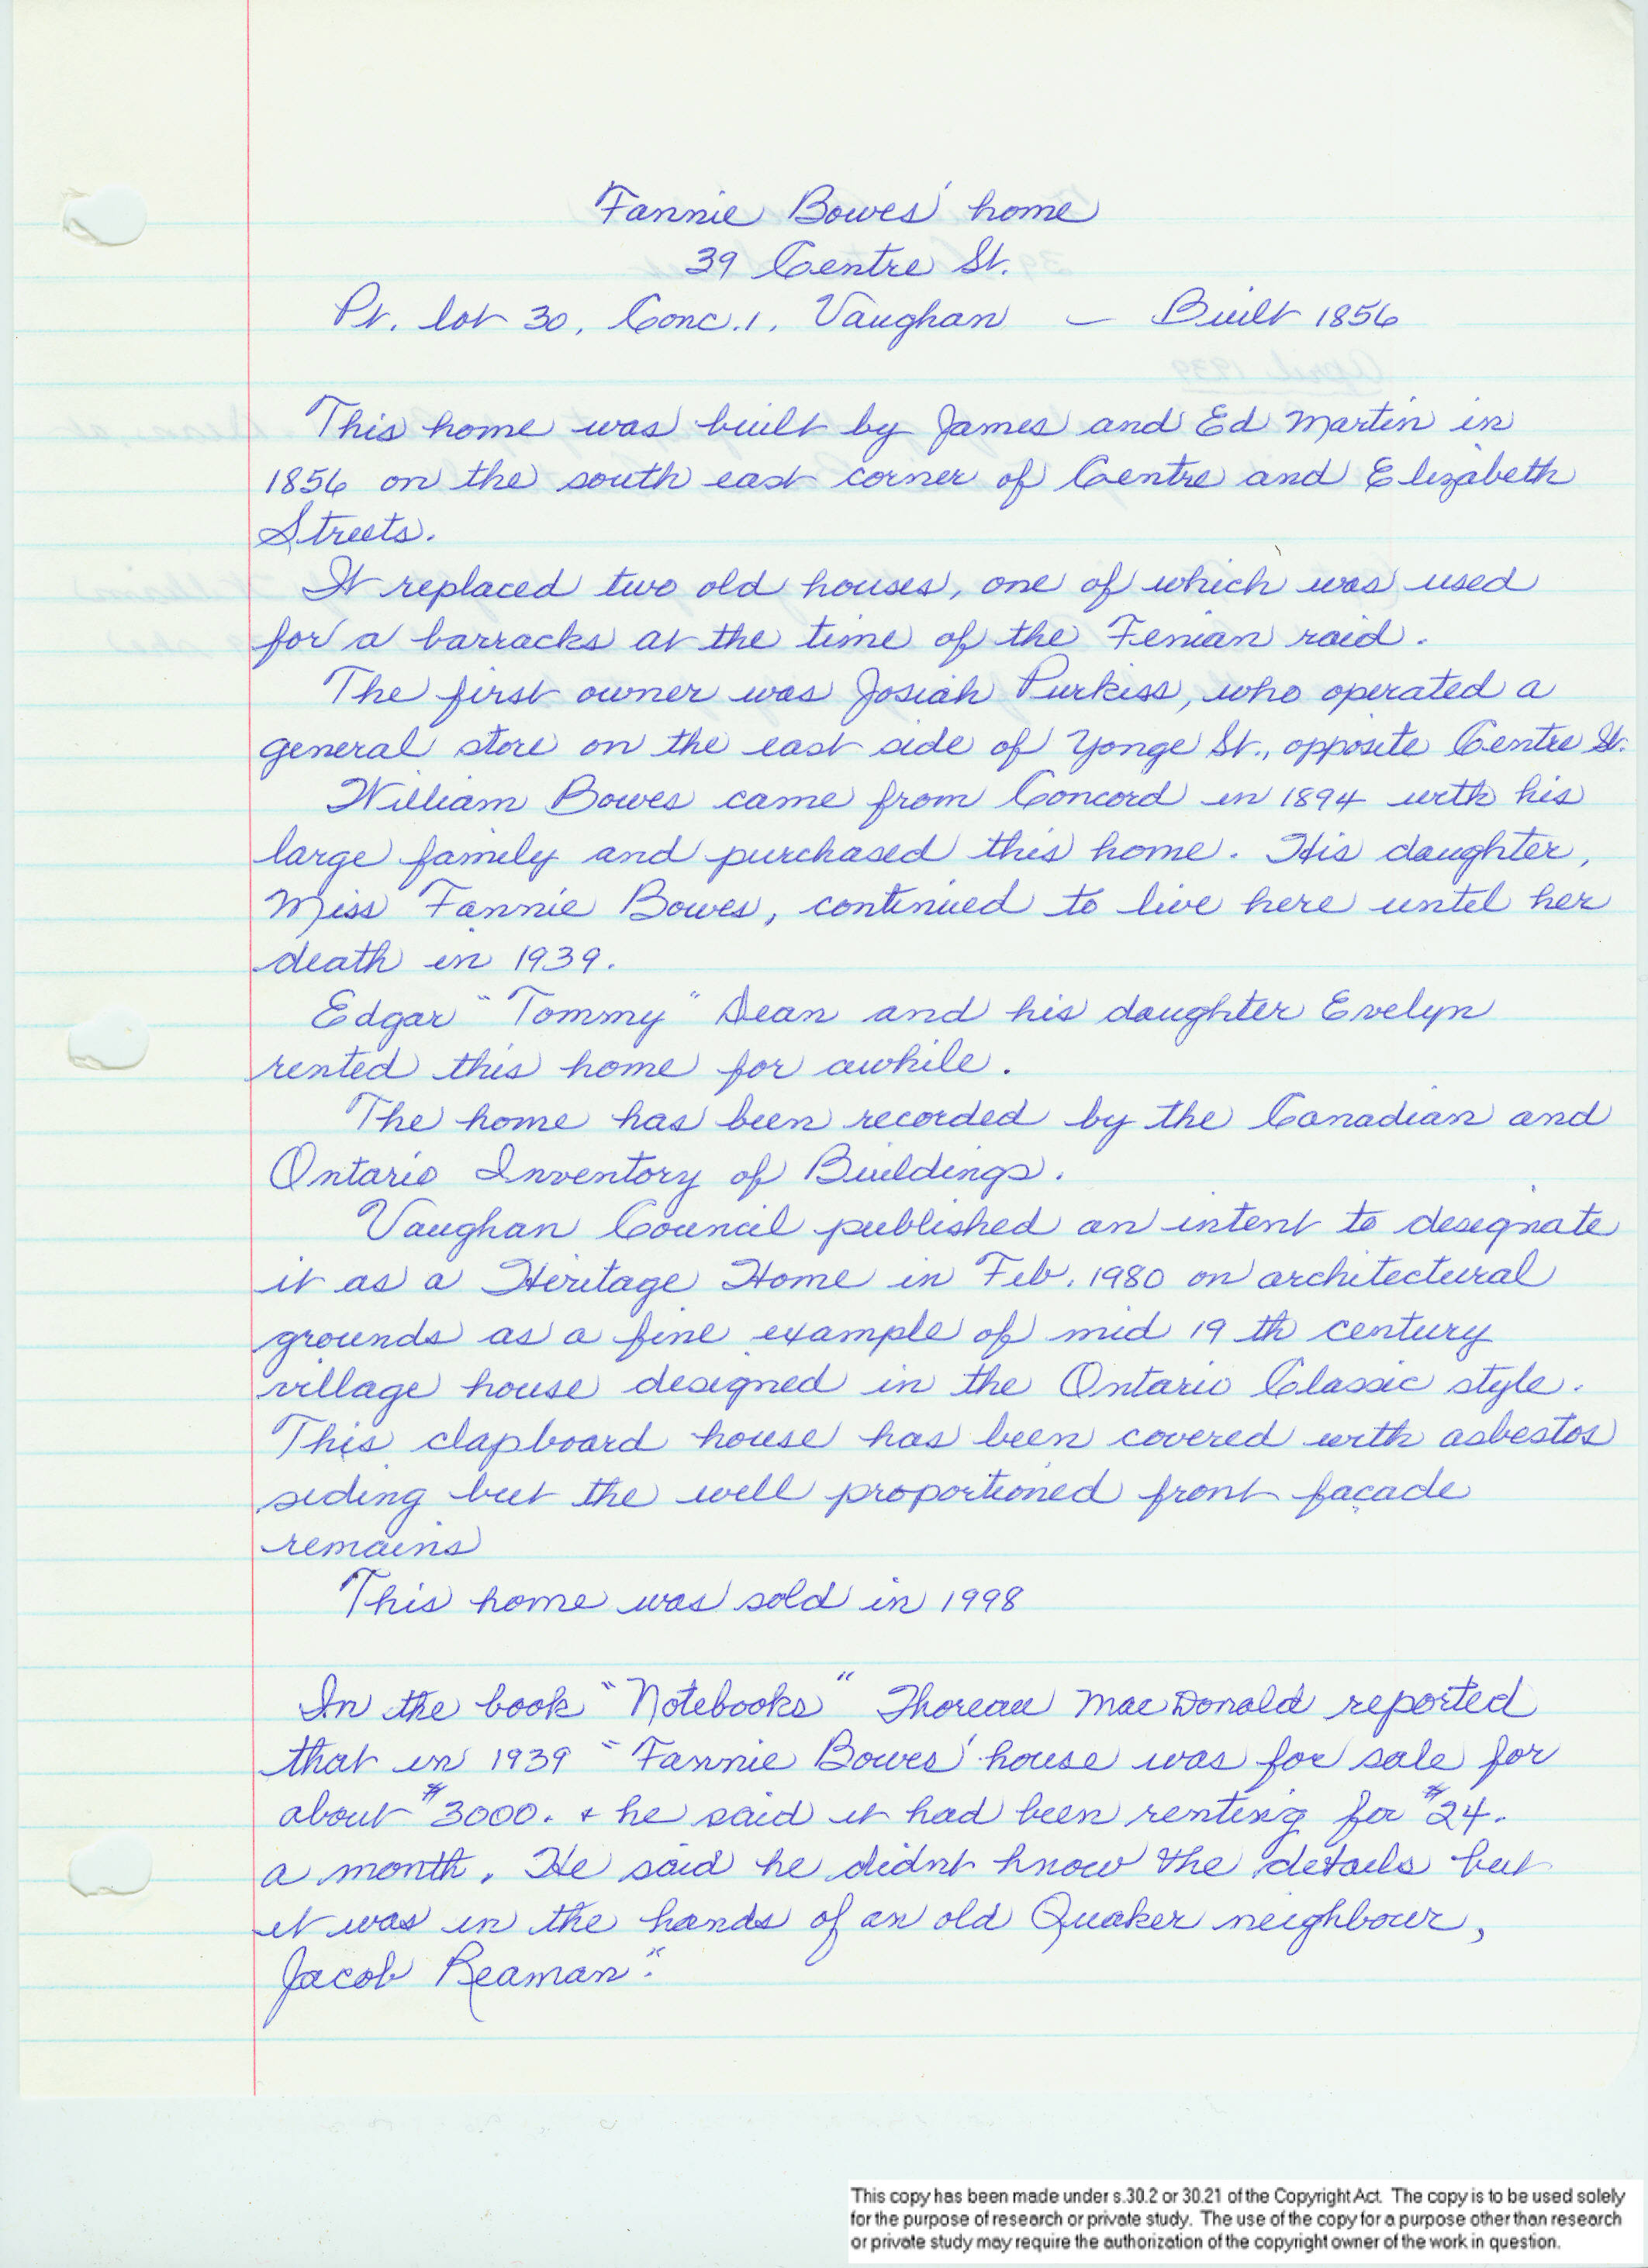 Fannie Bowes' home
39 Centre St.
Pt. lot 30, Conc. 1, Vaughan – Built 1856
This home was built by James and Ed Martin in
1856 on the south east corner of Centre and Elizabeth
Streets.
It replaced two old houses, one of which was used
for a barracks at the time of the Fenian raid.
The first owner was Josiah Purkiss, who operated a
general store on the east side of Yonge St., opposite Centre St.
William Bowes came from Concord in 1894 with his
large family and purchased this home. His daughter,
Miss Fannie Bowes, continued to live here until her
death in 1939.
Edgar "Tommy" Dean and his daughter Evelyn
rented this home for awhile.
The home has been recorded by the Canadian and
Ontario Inventory of Buildings.
Vaughan Council published an intent to designate
it as a Heritage Home in Feb. 1980 on architectural
grounds as a fine example of mid 19 th century
village house designed in the Ontario Classic style.
This clapboard house has been covered with asbestos
siding but the well proportioned front façade
remains
This home was sold in 1998
In the book "Notebooks" Thoreau MacDonald reported
that in 1939 "Fannie Bowes' house was for sale for
about $3000. + he said it had been renting for $24.
a month. He said he didnt know the details but
it was in the hands of an old Quaker neighbour,
Jacob Reaman".
This copy has been made under s.30.2 or 30.21 of the Copyright Act. The copy is to be used solely
for the purpose of research or private study. The use of the copy for a purpose other than research
or private study may require the authorization of the copyright owner of the work in question.